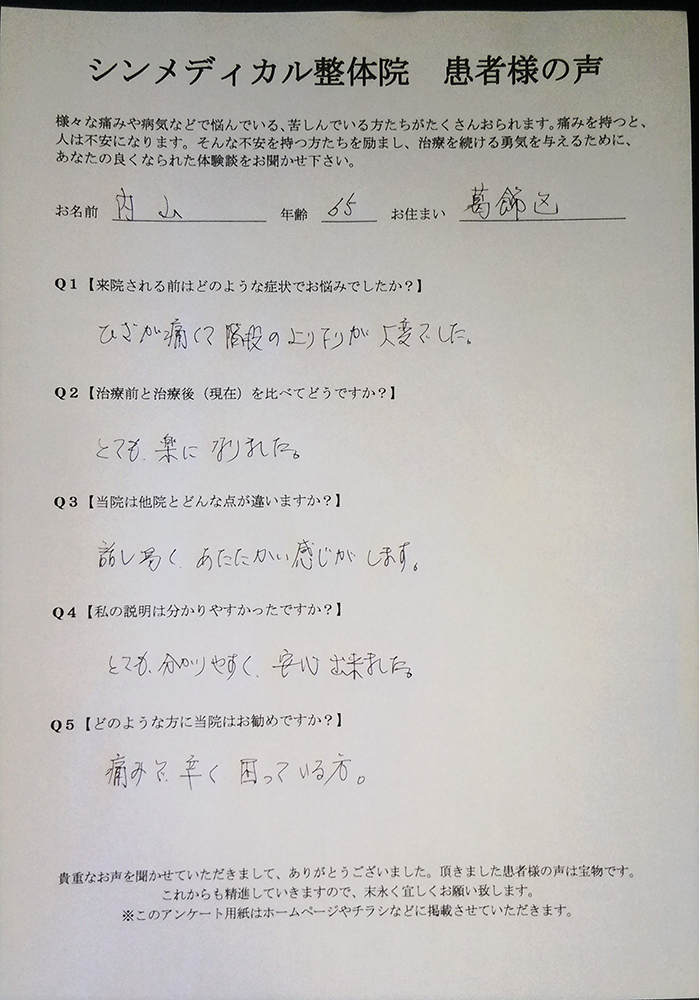 シンメディカル整体院　患者様の声
様々な痛みや病気などで悩んでいる、苦しんでいる方たちがたくさんおられます。痛みを持つと、
人は不安になります。そんな不安を持つ方たちを励まし、治療を続ける勇気を与えるために、
あなたの良くなられた体験談をお聞かせ下さい。
お名前 内山 年齢 65 お住まい 葛飾区
Q1【来院される前はどのような症状でお悩みでしたか？】
ひざが痛くて階段の上り下りが大変でした。
Q2【治療前と治療後（現在）を比べてどうですか？】
とても、楽になりました。
Q3【当院は他院とどんな点が違いますか？】
話し易く、あたたかい感じがします。
Q4【私の説明は分かりやすかったですか？】
とても、分かりやすく、安心出来ました。
Q5【どのような方に当院はお勧めですか？】
痛みで、辛く困っている方。
貴重なお声を聞かせていただきまして、ありがとうございました。頂きました患者様の声は宝物です。
これからも精進していきますので、末永く宜しくお願い致します。
※このアンケート用紙はホームページやチラシなどに掲載させていただきます。